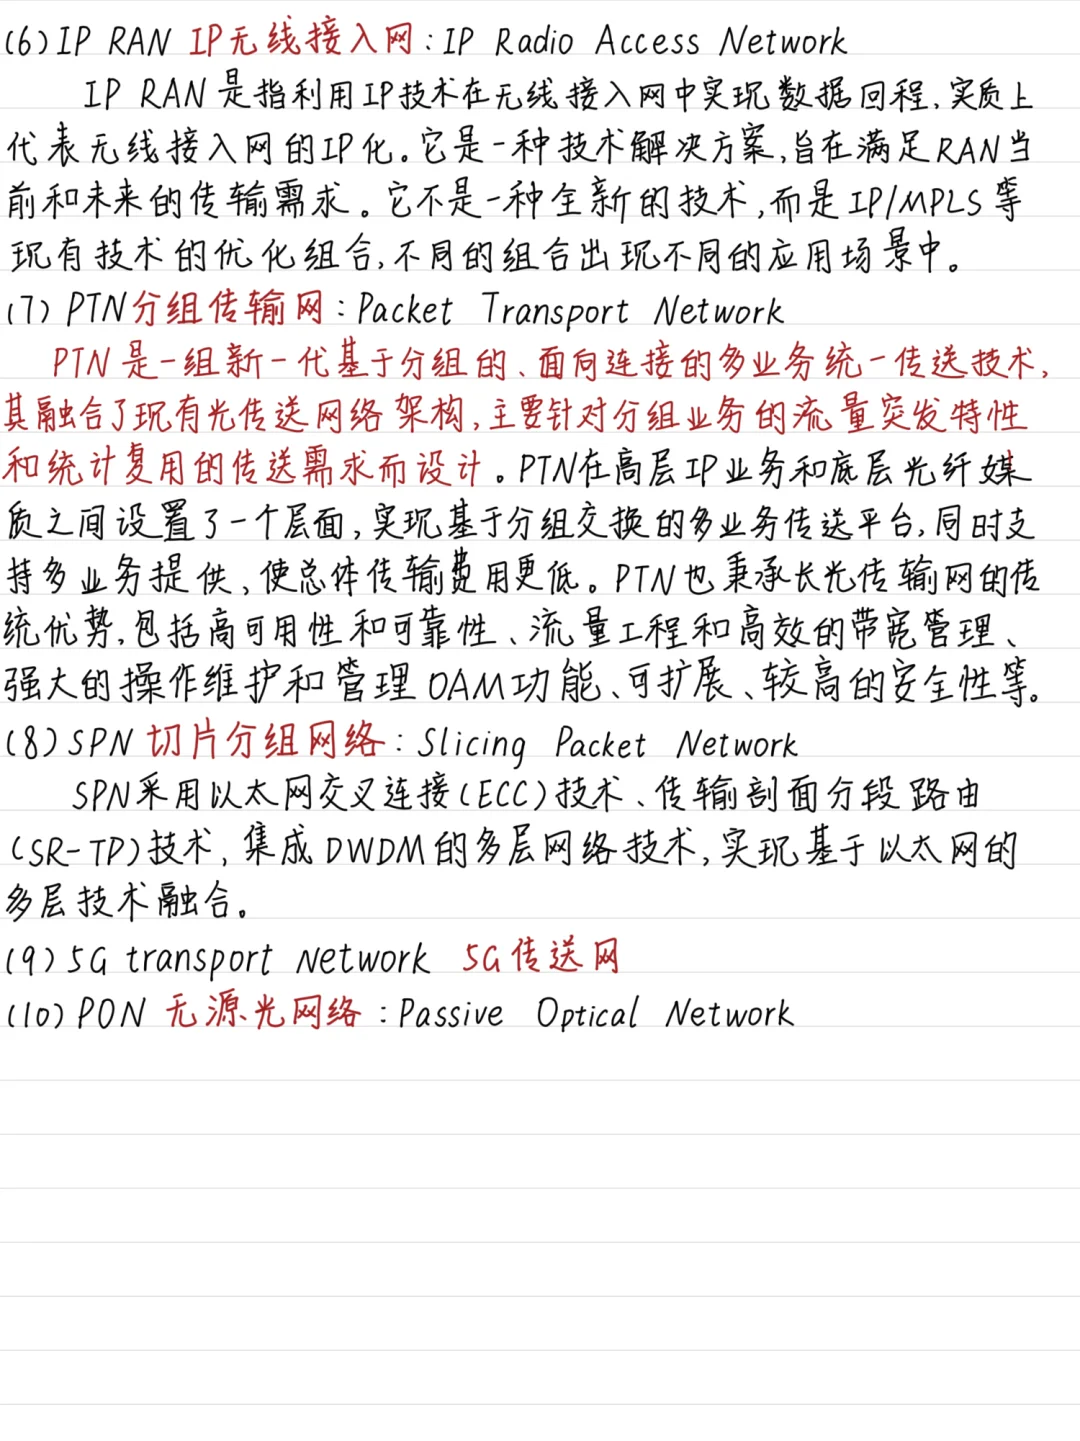 (6) IP RAN IP无线接入网: IP Radio Access Network
IP RAN是指利用IP技术在无线接入网中实现数据回程,实质上
代表无线接入网的IP化。它是一种技术解决方案,旨在满足RAN当
前和未来的传输需求。它不是一种全新的技术,而是IP/MPLS等
现有技术的优化组合,不同的组合出现不同的应用场景中。
(7) PTN分组传输网: Packet Transport Network
PTN是一组新一代基于分组的、面向连接的多业务统一传送技术,
其融合了现有光传送网络架构,主要针对分组业务的流量突发特性
和统计复用的传送需求而设计。PTN在高层IP业务和底层光纤媒
质之间设置了一个层面,实现基于分组交换的多业务传送平台,同时支
持多业务提供、使总体传输费用更低。PTN也秉承长光传输网的传
统优势,包括高可用性和可靠性、流量工程和高效的带宽管理、
强大的操作维护和管理OAM功能、可扩展、较高的安全性等。
(8) SPN 切片分组网络: Slicing Packet Network
SPN采用以太网交叉连接(ECC)技术、传输剖面分段路由
(SR-TP)技术, 集成DWDM的多层网络技术,实现基于以太网的
多层技术融合。
(9) 5G transport Network 5G传送网
(10) PON 无源光网络: Passive Optical Network